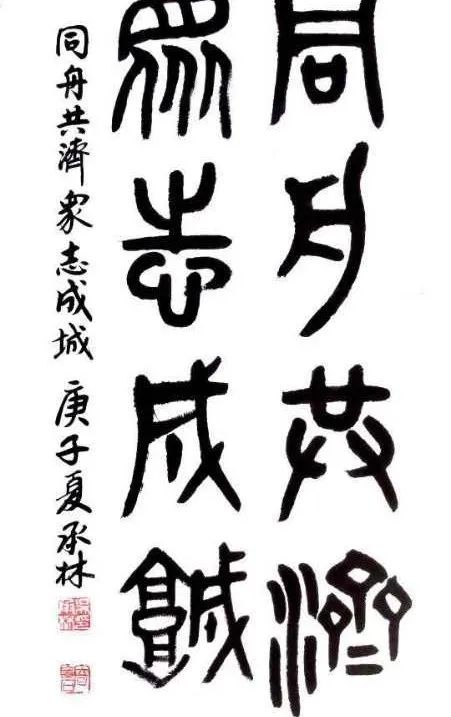 同舟共濟
眾志成城
同舟共濟眾志成城 庚子夏承林